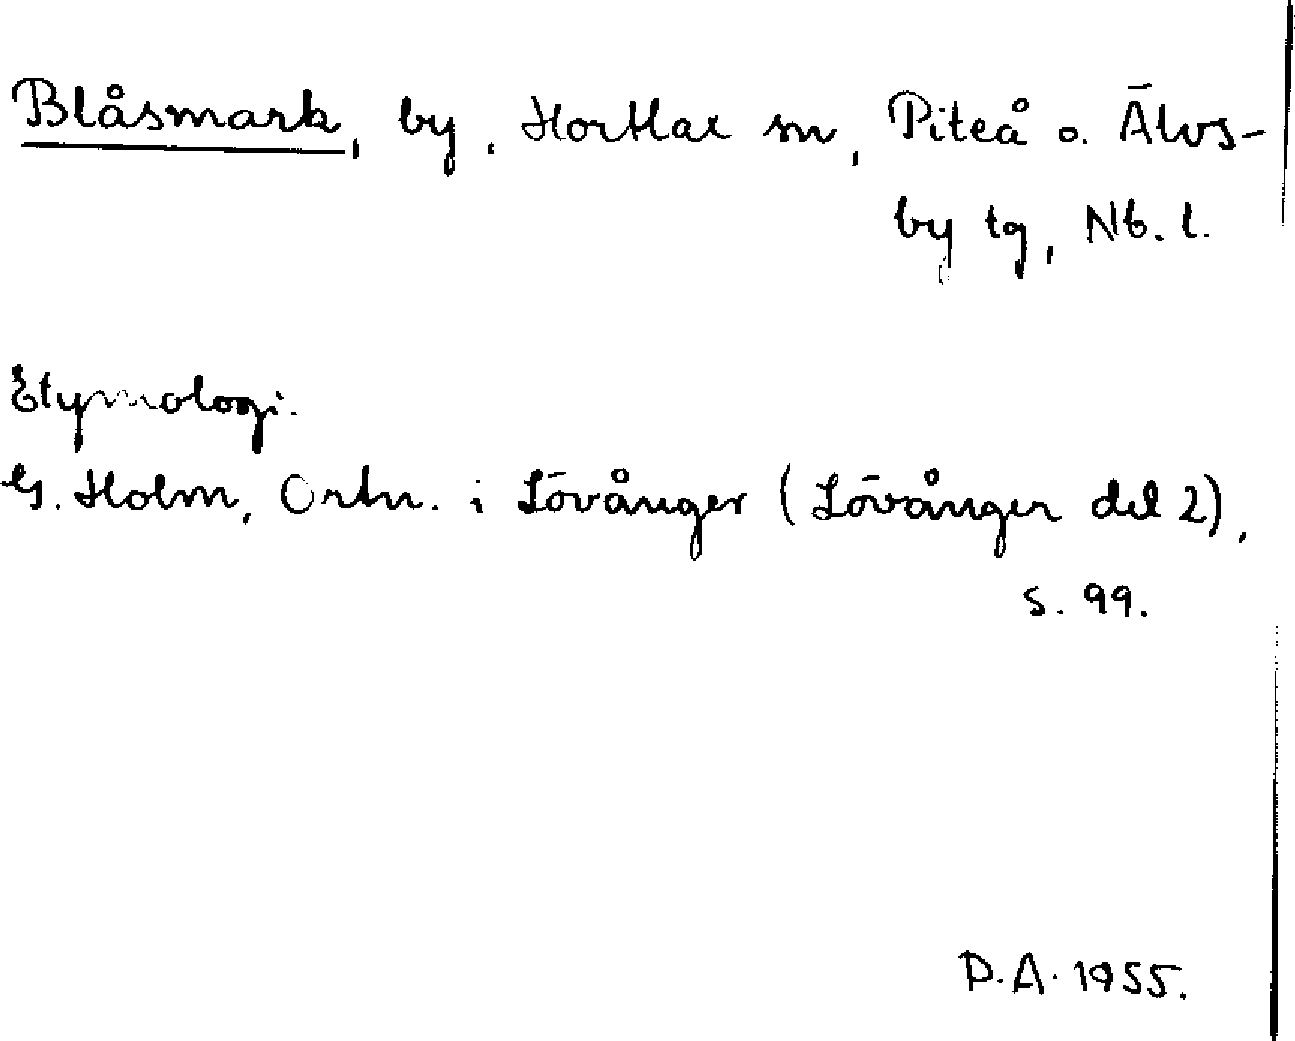 Blåsmark, by, Hortlax sn, Piteå o. Älvs-
by tg, Nb. l.
Etymologi.
G. Holm, Ortn. i Lövånger (Lövånger del 2),
s. 99.
D.A. 1955.